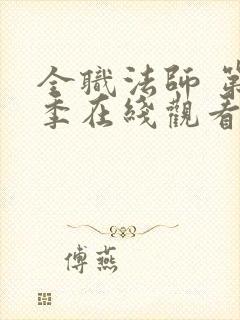 全職法師 第
季在綫觀看
傅燕